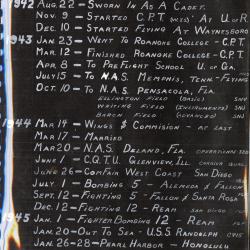 1942 AUG. 22 - SWORN IN AS A CADET.
NOV. 9 - STARTED C.P.T. AT U. OF R
DEC. 10 - STARTED FLYING AT WAYNESBORO
1943 JAN. 23 - WENT TO ROANOKE COLLEGE - C.P.T.
MAR. 12 - FINISHED ROANOKE COLLEGE - C.P.T.
APR. 8 - TO PRE FLIGHT SCHOOL U. OF GA.
JULY 15 - TO N.A.S. MEMPHIS, TENN. - FLYING
OCT. 10 - TO N.A.S. PENSACOLA, FLA.
ELLINGTON FIELD (BASIC) SNV
WHITING FIELD (INSTRUMENTS) SNJ
BARON FIELD (ADVANCED) SNJ
1944 MAR. 14 - WINGS & COMMISION - AT LAST
MAR 17 - MARRIED
MAR 20 - N.A.S. DELAND, FLA. OPERATIONAL
JUNE 1 - C.Q.T.U. GLENVIEW, ILL. CARRIER
JUNE 26 - COMFAIR WEST COAST SAN DIEGO
JULY 1 - BOMBING 5 - ALEMEDA & FALLON
SEPT. 12 - FIGHTING 5 - FALLON & SANTA ROSA
DEC. 12 - FIGHTING 12 - REAM SAN DIEGO
1945 JAN. 1 - FIGHTER BOMBING 12 - REAM
JAN. 20 - OUT TO SEA - U.S.S. RANDOLPH
JAN. 26-28 - PEARL HARBOR - HONOLULU